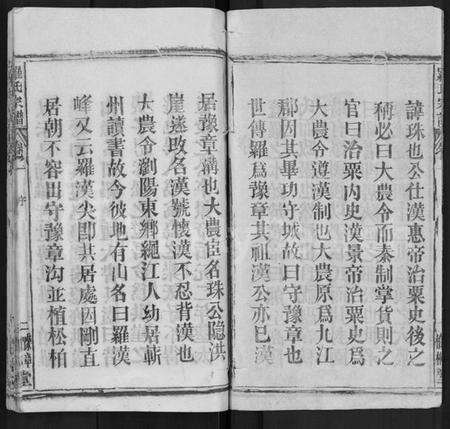 諱珠也公仕漢惠帝治粟史後之
稱必曰大農令而秦制掌貨則之
官曰治粟内史漢景帝治粟史爲
大農令遵漢制也大農原爲九江
郡因其畢功守城故曰守豫章也
世傳羅爲豫章其祖漢公亦巳漢
居豫章溝也大農臣名珠公隐洪
崖遂改名漢號懷漢不忍背漢也
大農令瀏陽東鄉繩江人幼居蘄
州讀書故今彼地有山名曰羅漢
峰又云羅漢尖即其居處因剛直
居朝不容出守豫章沟並植松柏
羅氏宗譜
卷一
序
二
豫章堂